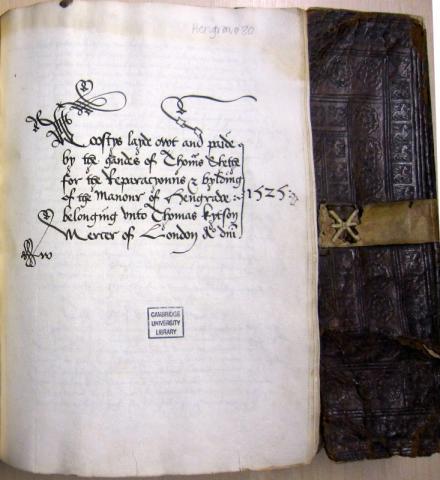 Hengrave 80
Coostys layde owt and paide
by the handes of Thom̃s Shethe
for the Reparacyonns & bylding
of the Manour of Hengrave
1525
belonging vnto Thomas Kytson
Mercer of London &c
CAMBRIDGE
UNIVERSITY
LIBRARY